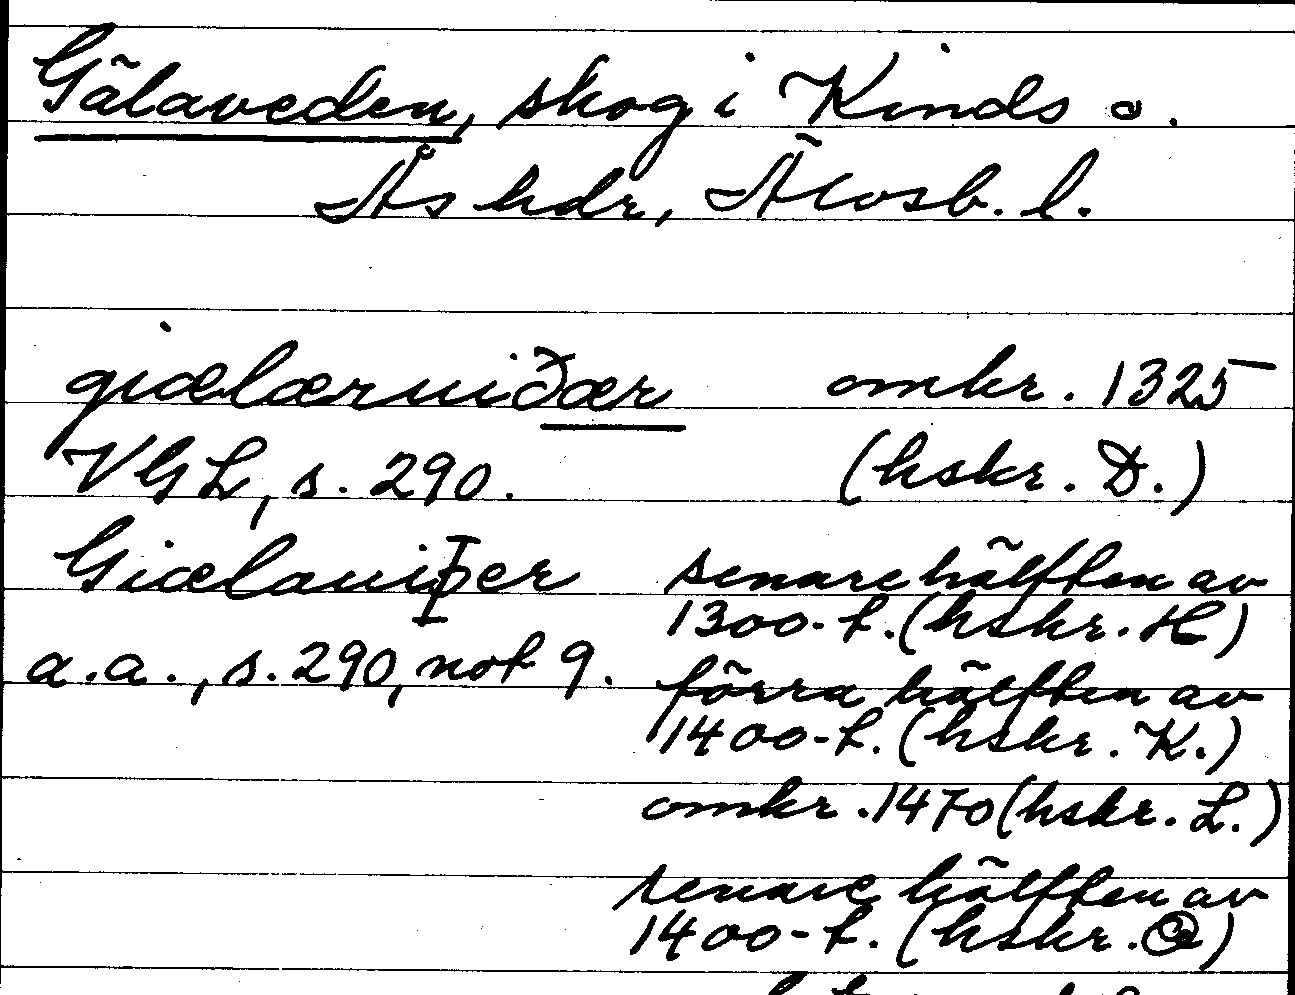 Gälaveden, skog i Kinds o.
Ås hdr, Älvsb. l.
giælærwiðær omkr. 1325
VGL, s. 290. (hskr. D.)
Giælauiþer senare hälften av
1300-t. (hskr. H)
a.a., s. 290, not 9. förra hälften av
1400-t. (hskr. K.)
omkr. 1470 (hskr. L.)
senare hälften av
1400-t. (hskr. )